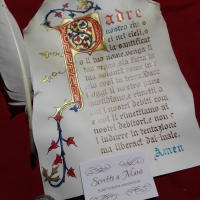 Padre
nostro che
ei nei cieli,
sia santificato
il tuo nome venga
il tuo regno sia fatta la
tua volontà come in
cielo così in terra. Dacci
oggi il nostro pane
quotidiano e rimetti a
noi i nostri debiti come
noi li rimettiamo ai
nostri debitori, e non ci
indurre in tentazione
ma liberaci dal male.
Amen
Scritti a Mano